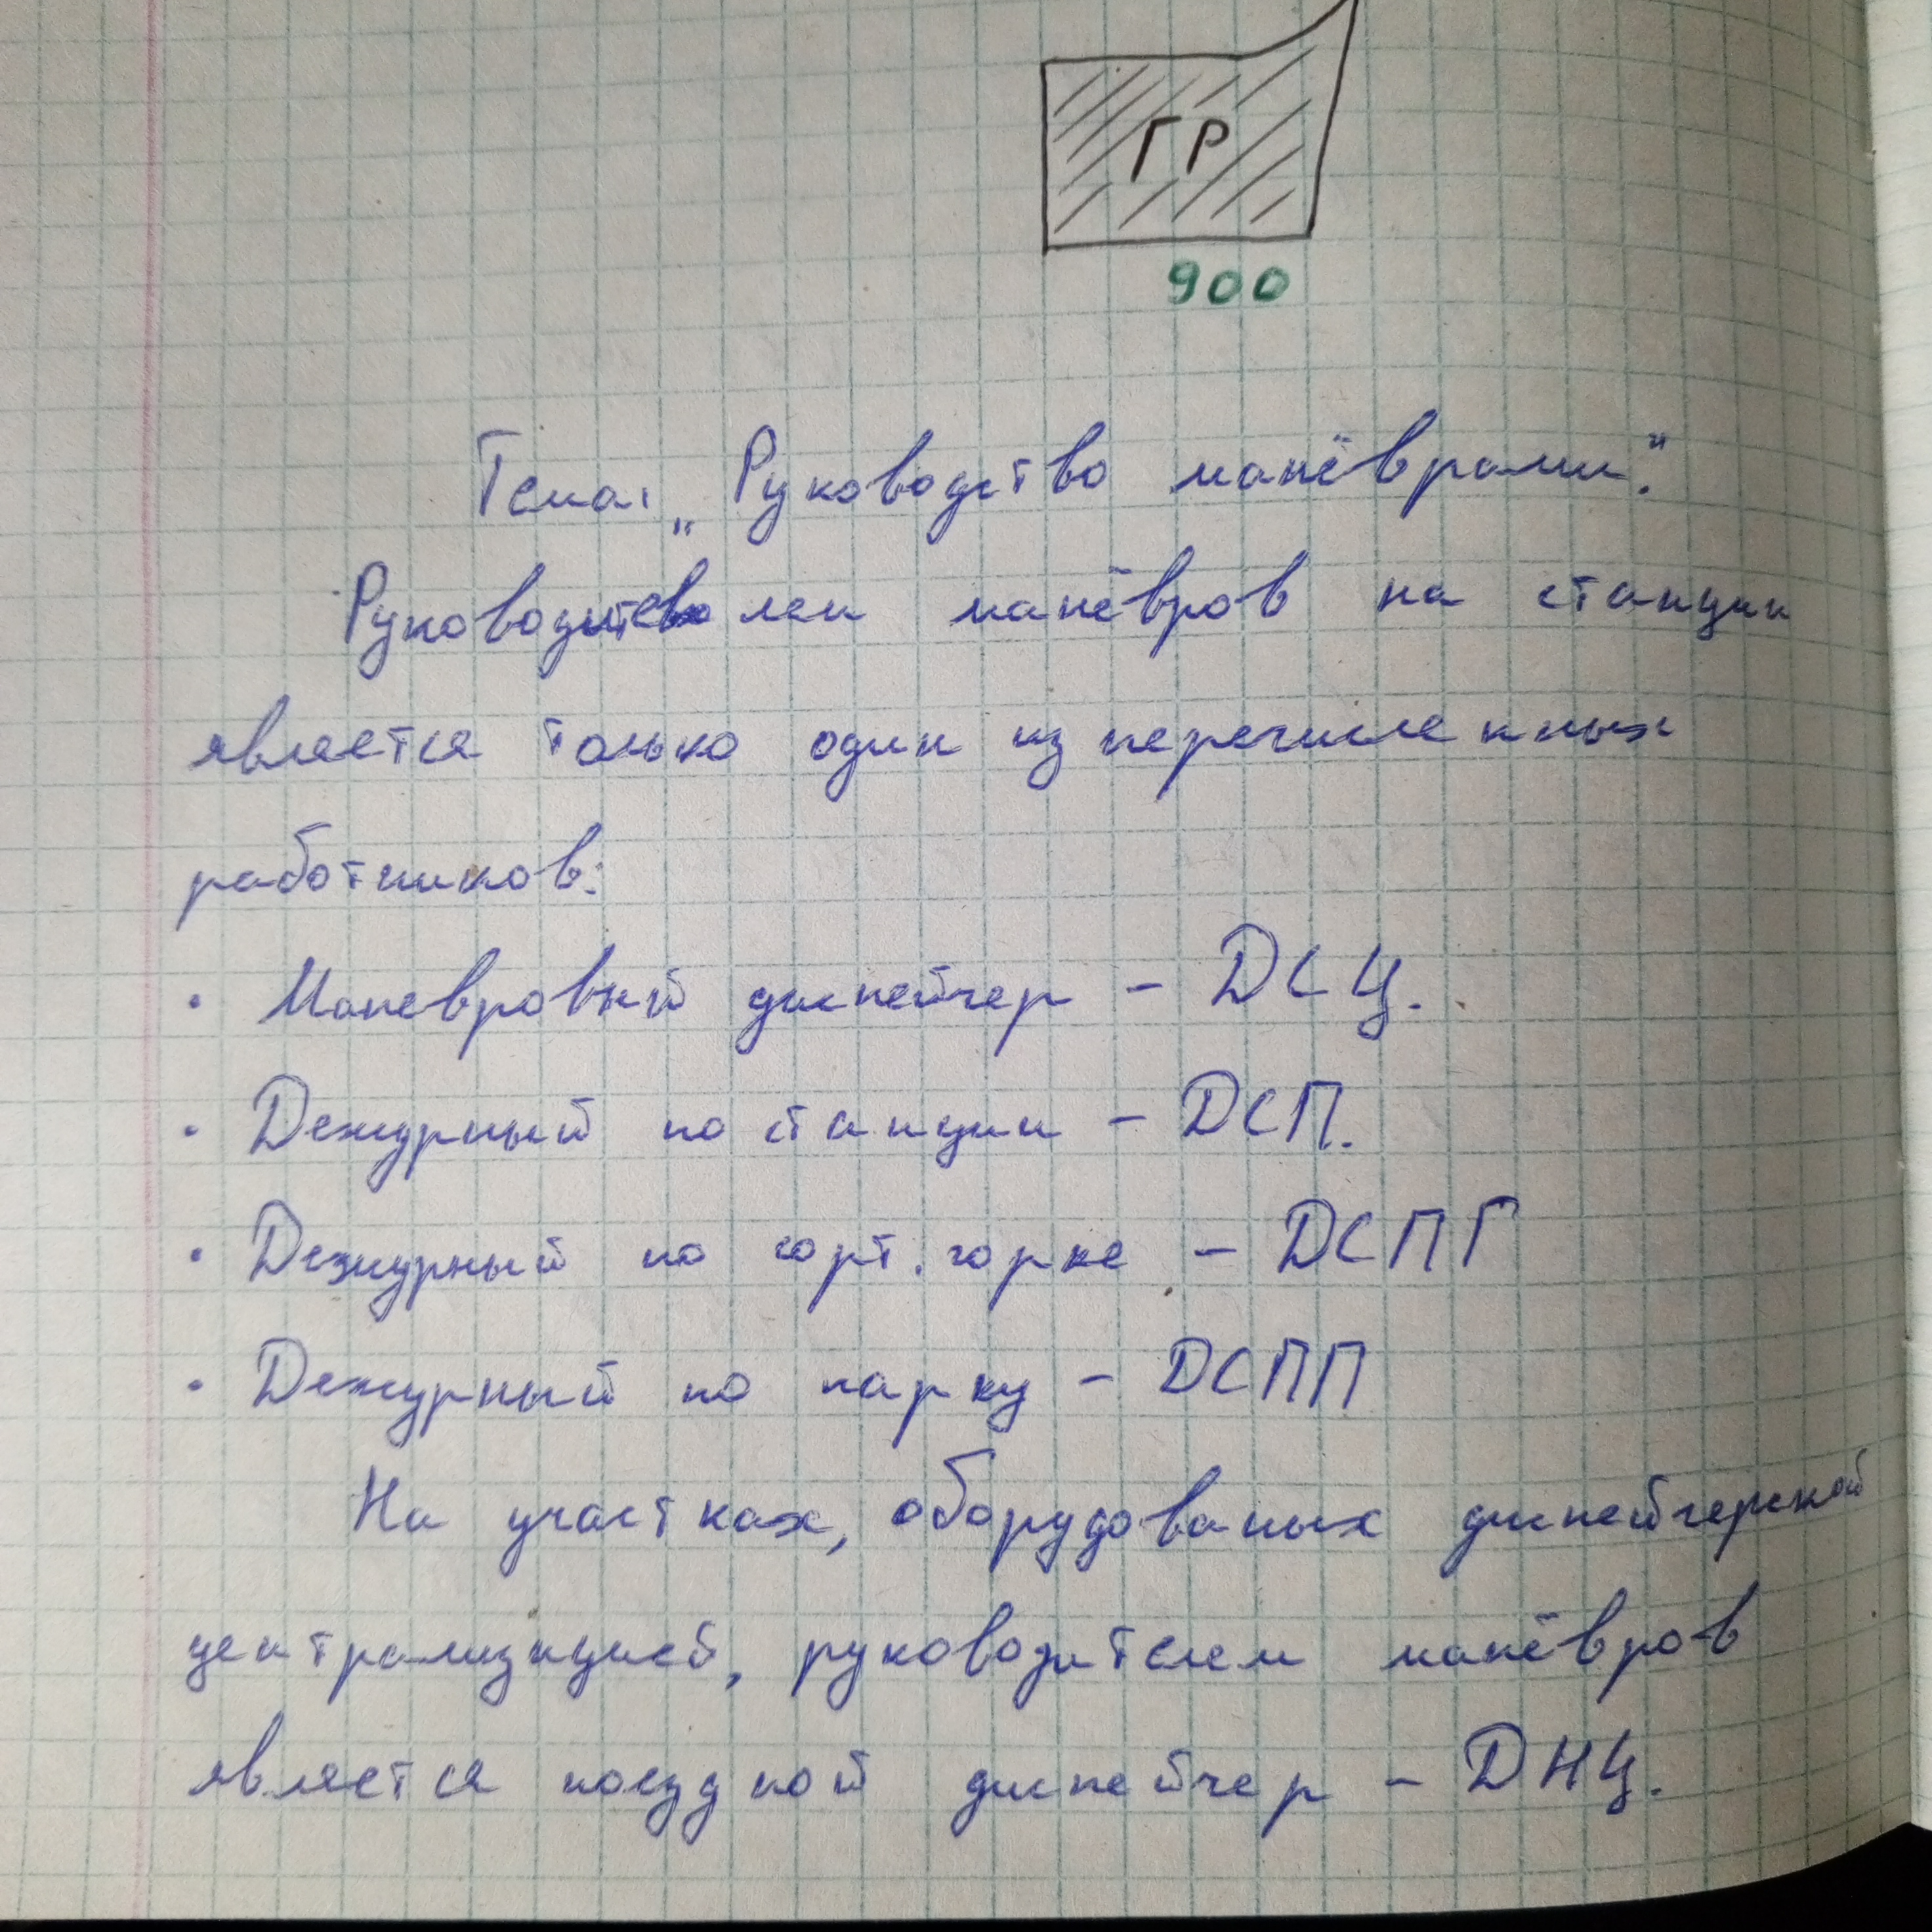 ГР
900
Тема: „Руководство манёврами".
Руководителем манёвров на станции
является только один из перечисленных
работников:
· Маневровый диспейчер – ДСЦ.
· Дежурный по станции – ДСП.
· Дежурный по сорт. горке – ДСПГ
· Дежурный по парку – ДСПП
На участках, оборудованых диспейчерской
централизацией, руководителем манёвров
является поездной диспейчер – ДНЦ.